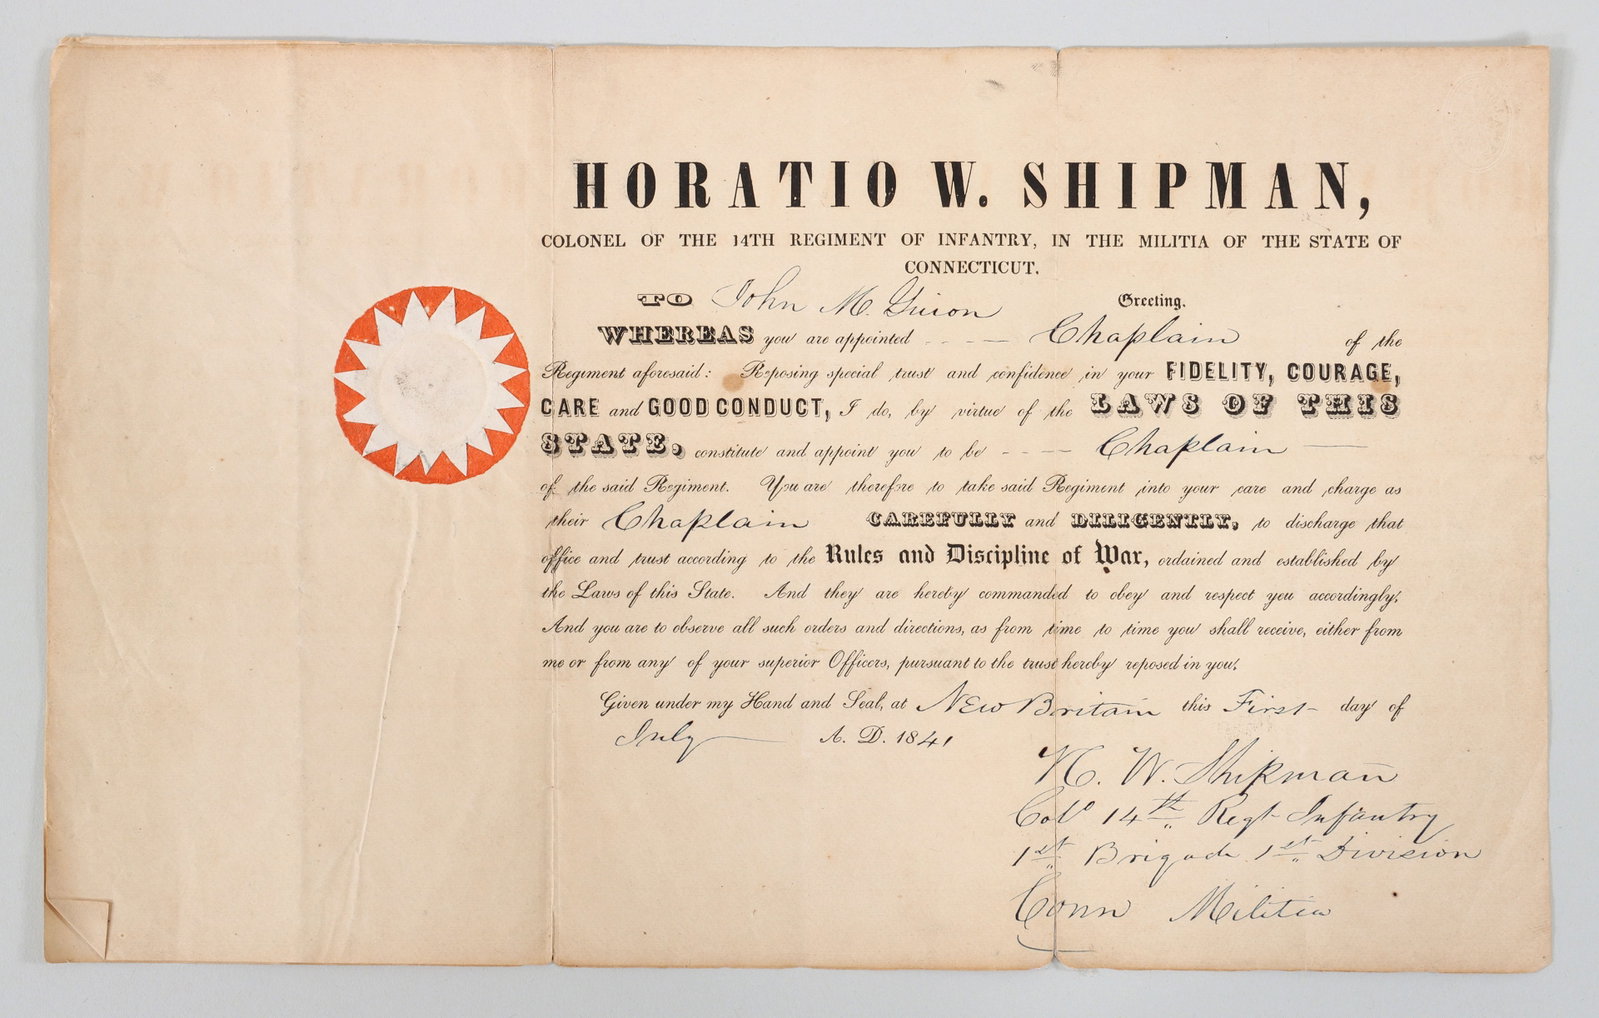 HORATIO W. SHIPMAN,
COLONEL OF THE 14TH REGIMENT OF INFANTRY, IN THE MILITIA OF THE STATE OF
CONNECTICUT.
TO John M. Guion Greeting.
WHEREAS you are appointed - - - — Chaplain of the
Regiment aforesaid: Reposing special trust and confidence in your FIDELITY, COURAGE,
CARE and GOOD CONDUCT, I do, by virtue of the LAWS OF THIS
STATE, constitute and appoint you to be - - - — Chaplain —
of the said Regiment. You are therefore to take said Regiment into your care and charge as
their Chaplain CAREFULLY and DILIGENTLY, to discharge that
office and trust according to the Rules and Discipline of War, ordained and established by
the Laws of this State. And they are hereby commanded to obey and respect you accordingly.
And you are to observe all such orders and directions, as from time to time you shall receive, either from
me or from any of your superior Officers, pursuant to the trust hereby reposed in you.
Given under my Hand and Seal, at New Britain this First day of
July — A. D. 1841
H. W. Shipman
Col 14th Regt Infantry
1st Brigade 1st Division
Conn Militia